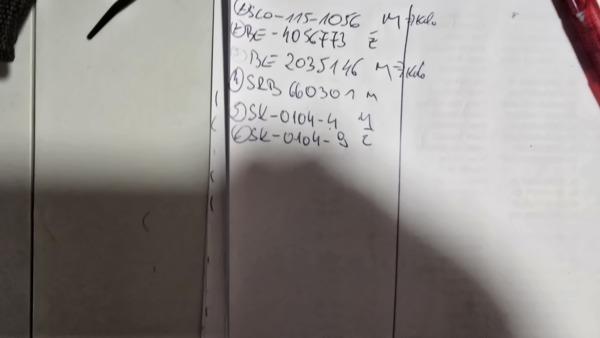 ① SLO-115-1056 M → Kelo
② BE-4056773 Ž
③ BE 2035146 M → Kelo
④ SRB 660301 M
⑤ SK-0104-4 M
⑥ SK-0104-9 Ž